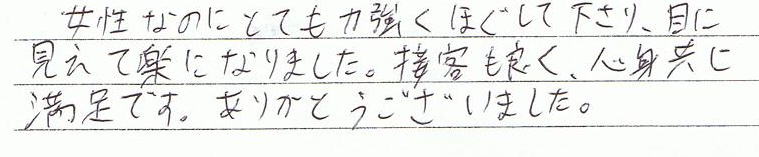 女性なのにとても力強くほぐして下さり、目に
見えて楽になりました。接客も良く、心身共に
満足です。ありがとうございました。